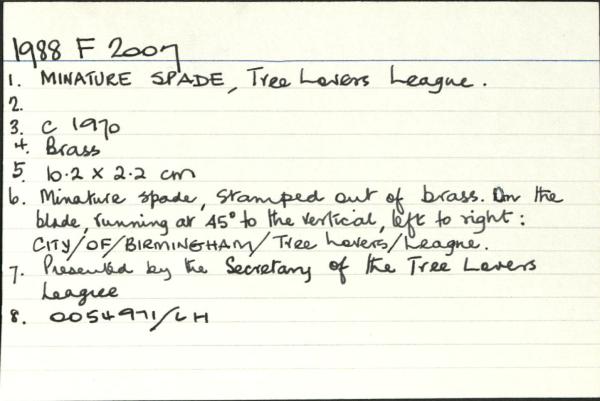 1988 F 2007
1. MINATURE SPADE, Tree Lovers League.
2.
3. C 1970
4. Brass
5. 10.2 x 2.2 cm
6. Minature spade, stamped out of brass. On the
blade, running at 45° to the vertical, left to right:
CITY/OF/BIRMINGHAM/Tree Lovers/League.
7. Presented by the Secretary of the Tree Lovers
League
8. 0054971/LH